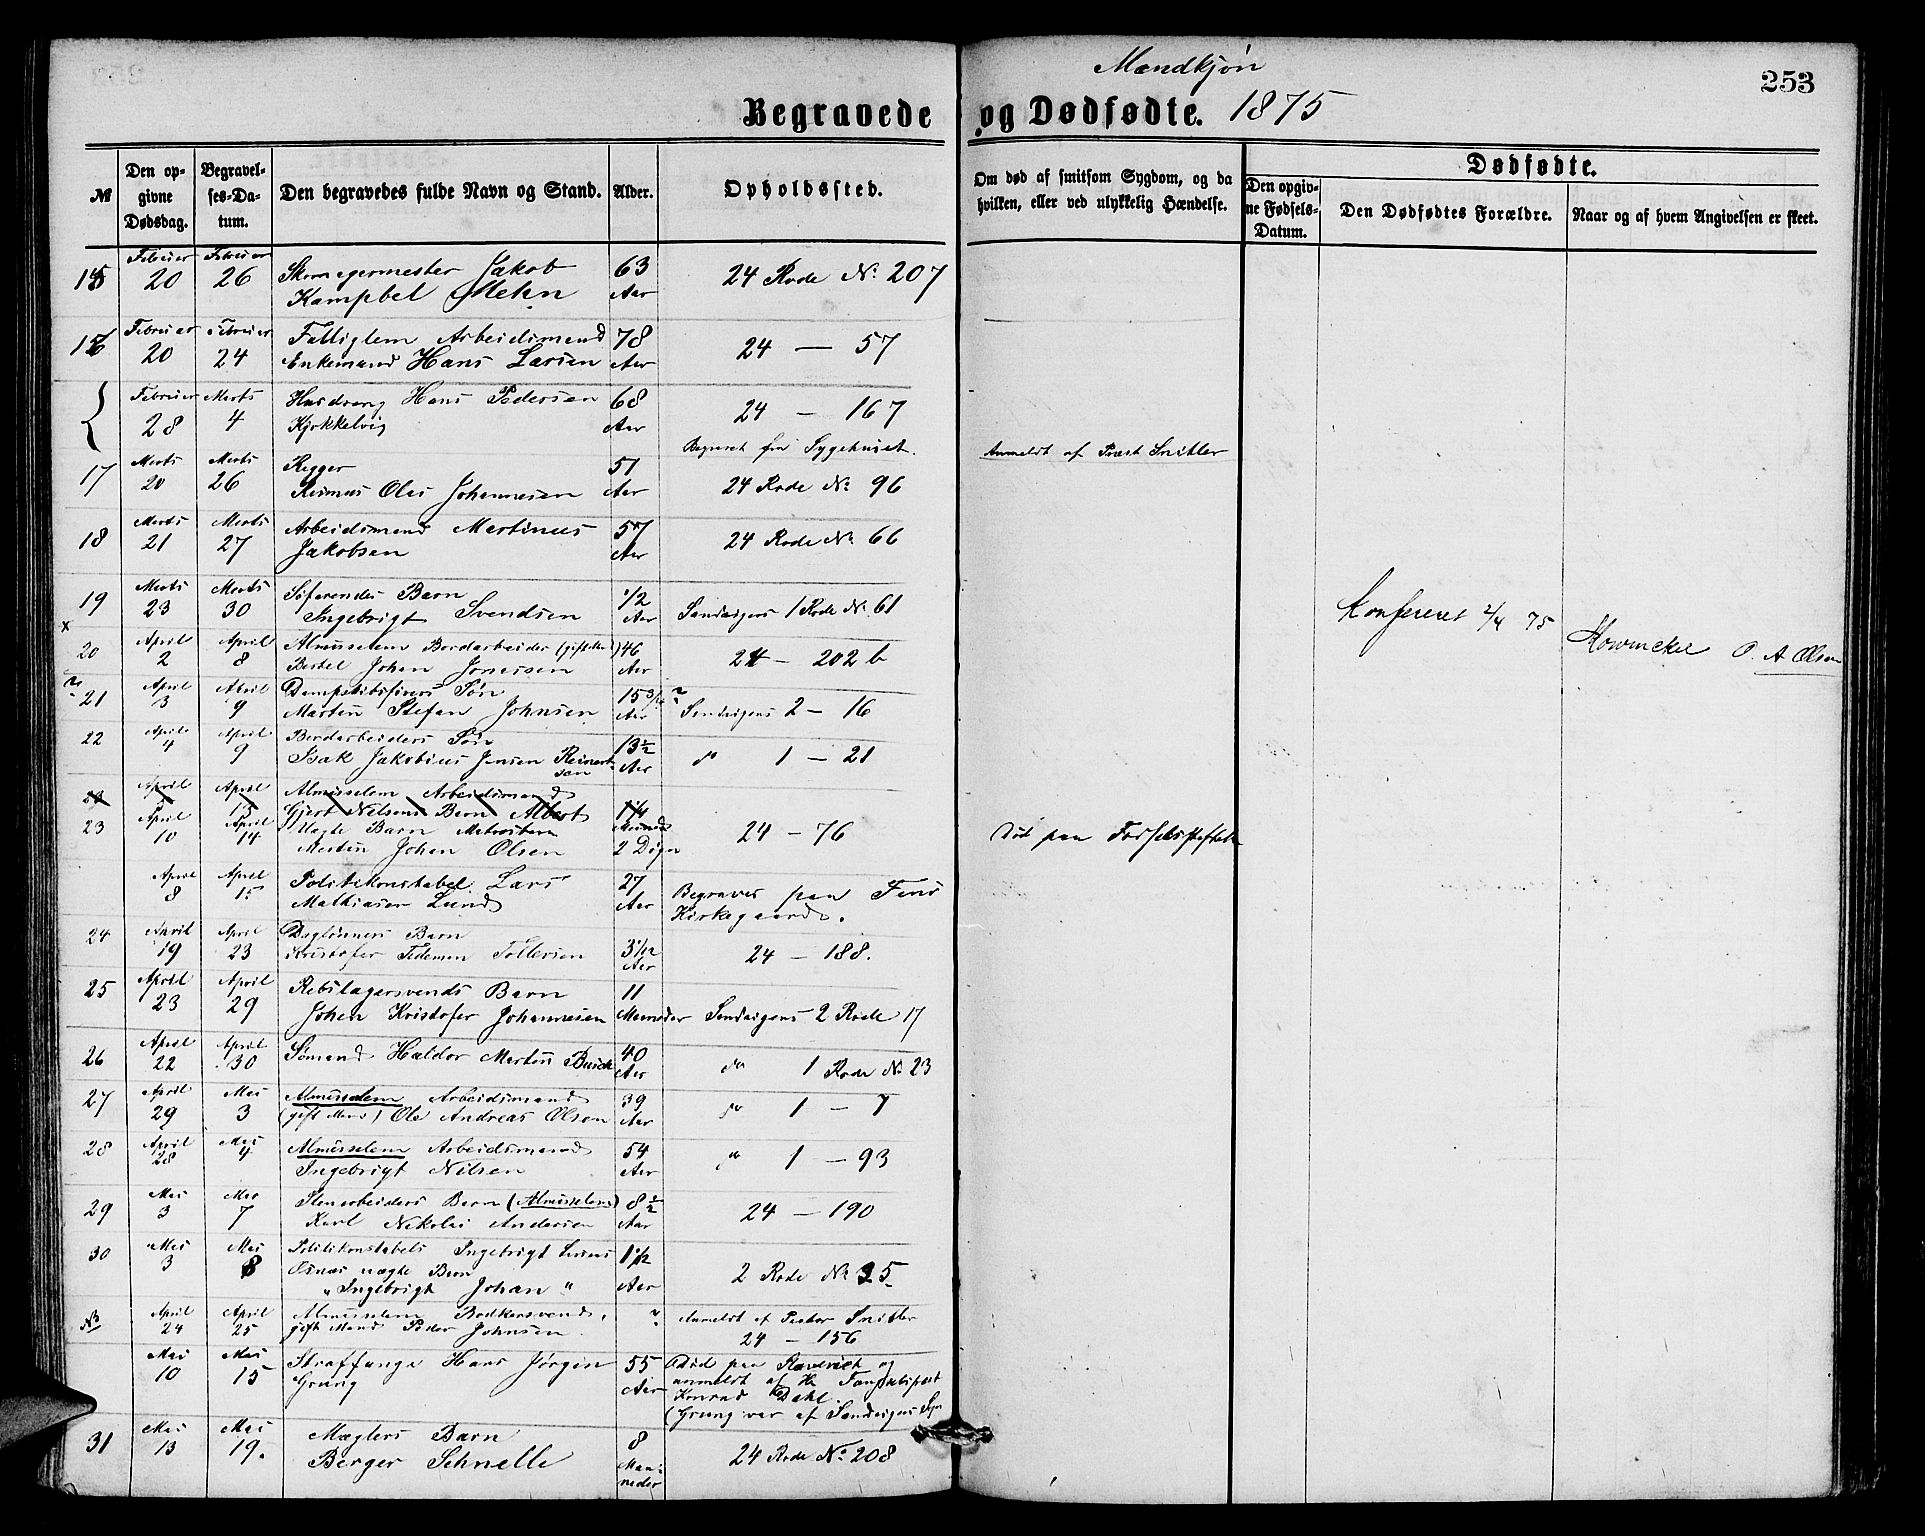 Mandkjøn
253
Begravede og Dødfødte. 1875
№
Den opgivne Dødsdag.
Begravelses-Datum.
Den begravedes fulde Navn og Stand.
Alder.
Opholdssted.
Om død af smitsom Sygdom, og da hvilken, eller ved ulykkelig Hændelse.
Dødfødte.
Den opgivne Fødsels-Datum.
Den Dødfødtes Forældre.
Naar og af hvem Angivelsen er skeet.
15 Februar 20 Februar 26 Skomagermester Jakob 63 24 Rode №. 207
Kampbel Mehn Aar
16 Februar 20 Februar 24 Fattiglem Arbeidsmand 78 24 — 57
Enkemand Hans Larsen Aar
Februar 28 Marts 4 Husdreng Hans Pedersen 68 24 — 167
Kjøkkelvig Aar
Begravet fra Sygehuset. Anmeldt af Præst Snitler
17 Marts 20 Marts 26 Rigger 51
Rasmus Olai Johannesen Aar 24 Rode №. 96
18 Marts 21 Marts 27 Arbeidsmand Martinus 57 24 Rode №. 66
Jakobsen Aar
19 Marts 23 Marts 30 Søfarendes Barn 1/2
Ingebrigt Svendsen Aar Sandvigens 1 Rode №. 61
Konfereret 2/4 75
Kowinckel O. A Olsen
x
20 April 2 April 8 Almisselem Bordarbeider (gift) 46 24 — 202 b
Bertel Johan Jonassen Aar
21 April 3 April 9 Dampskibsfirers Søn 15 3/4
Martin Stefan Johnsen Aar Sandvigens 2 — 16
22 April 4 April 9 Bordarbeiders Søn 13 1/2
Isak Jakobius Jensen Reinertsen Aar do 1 — 21
April April 13 Almisselem Arbeidsmand
Gjert Nilsens Barn Albert 1 1/4
23 April 10 April 14 Uægte Barn 24 — 76 Død paa Fødselsstiftelsen
Martin Johan Olsen 2 Døgn
April 8 April 15 Politikonstabel Lars 27 Begraves paa Fane
Mathiasen Lund Aar Kirkegaard.
24 April 19 April 23 Dagløners Barn
Kristofer Tideman Tollersen 3 1/12 Aar 24 — 188.
25 April 23 April 29 Rebslagersvends Barn 11
Johan Kristofer Johannesen Maaneder Sandvigens 2 Rode 17
26 April 22 April 30 Sømand Haldor Martin Busch 40 Aar do 1 Rode №. 23
27 April 29 Mai 3 Almisselem Arbeidsmand 39
(gift Mand) Ole Andreas Olsen Aar do 1 — 7
28 April 28 Mai 4 Almisselem Arbeidsmand 54
Ingebrigt Nilsen Aar do 1 — 93
29 Mai 3 Mai 7 Stenarbeiders Barn (Almisselem) 8 1/2
Karl Nikolai Andersen Aar 24 — 190
30 Mai 3 Mai 8 Politikonstabels Ingebrigt 1 1/12
uægte Barn
„ Ingebrigt Johan „ Aar 2 Rode №. 35
April 24 April 25 Almisselem Bødkersvend, Anmeldt af Pastor Snitler
gift Mand Peder Johnsen. 24 — 156
Mai 10 Mai 15 Straffange Hans Jørgen 55 Død paa Slaveriet og
Grung Aar anmeldt af Hr
Konrad Dahl
(Grung var af Sandvigens Sogn
31 Mai 13 Mai 19. Mæglers Barn 8
Berger Schnelle Maaneder 24 Rode №. 208